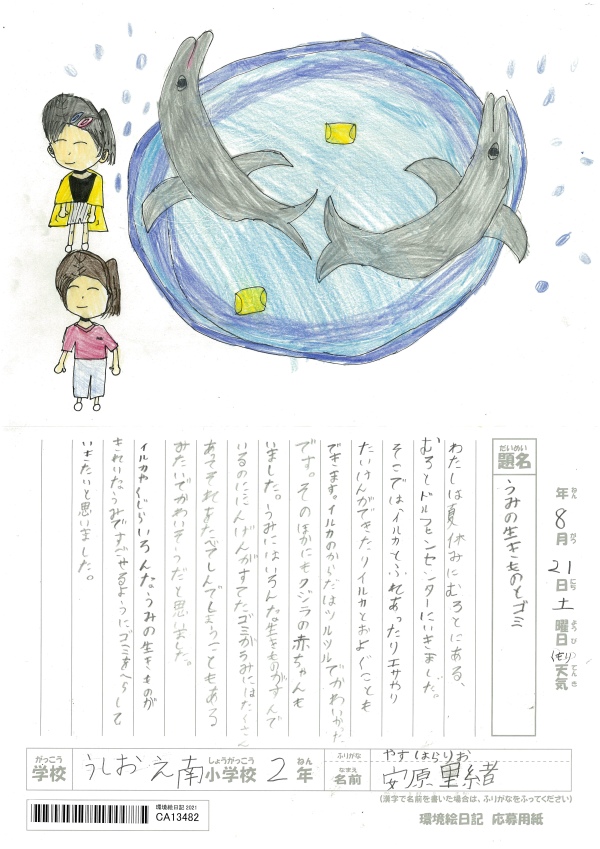 年 8月 21日 土曜日 (くもり) 天気
ねん がつ にち ようび てんき
だいめい
題名
うみの生きものとゴミ
わたしは夏休みにむろとにある、
むろとドルフィンセンターにいきました。
そこでは、イルカとふれあったりエサやり
たいけんができたりイルカとおよぐことも
できます。イルカのからだはツルツルでかわいかった
です。そのほかにもクジラの赤ちゃんも
いました。うみにはいろんな生きものがすんで
いるのににんげんがすてたゴミがうみにはたくさん
あってそれをたべてしんでしまうこともある
みたいでかわいそうだと思いました。
イルカやくじらいろんな。うみの生きものが
きれいなうみですごせるようにゴミをへらして
いきたいと思いました。
がっこう しょうがっこう ねん
学校 うしおえ南小学校 2年
ふりがな やすはらりお
なまえ
名前 安原里緒
(漢字で名前を書いた場合は、ふりがなをふってください)
環境絵日記 応募用紙
環境絵日記2021
CA13482